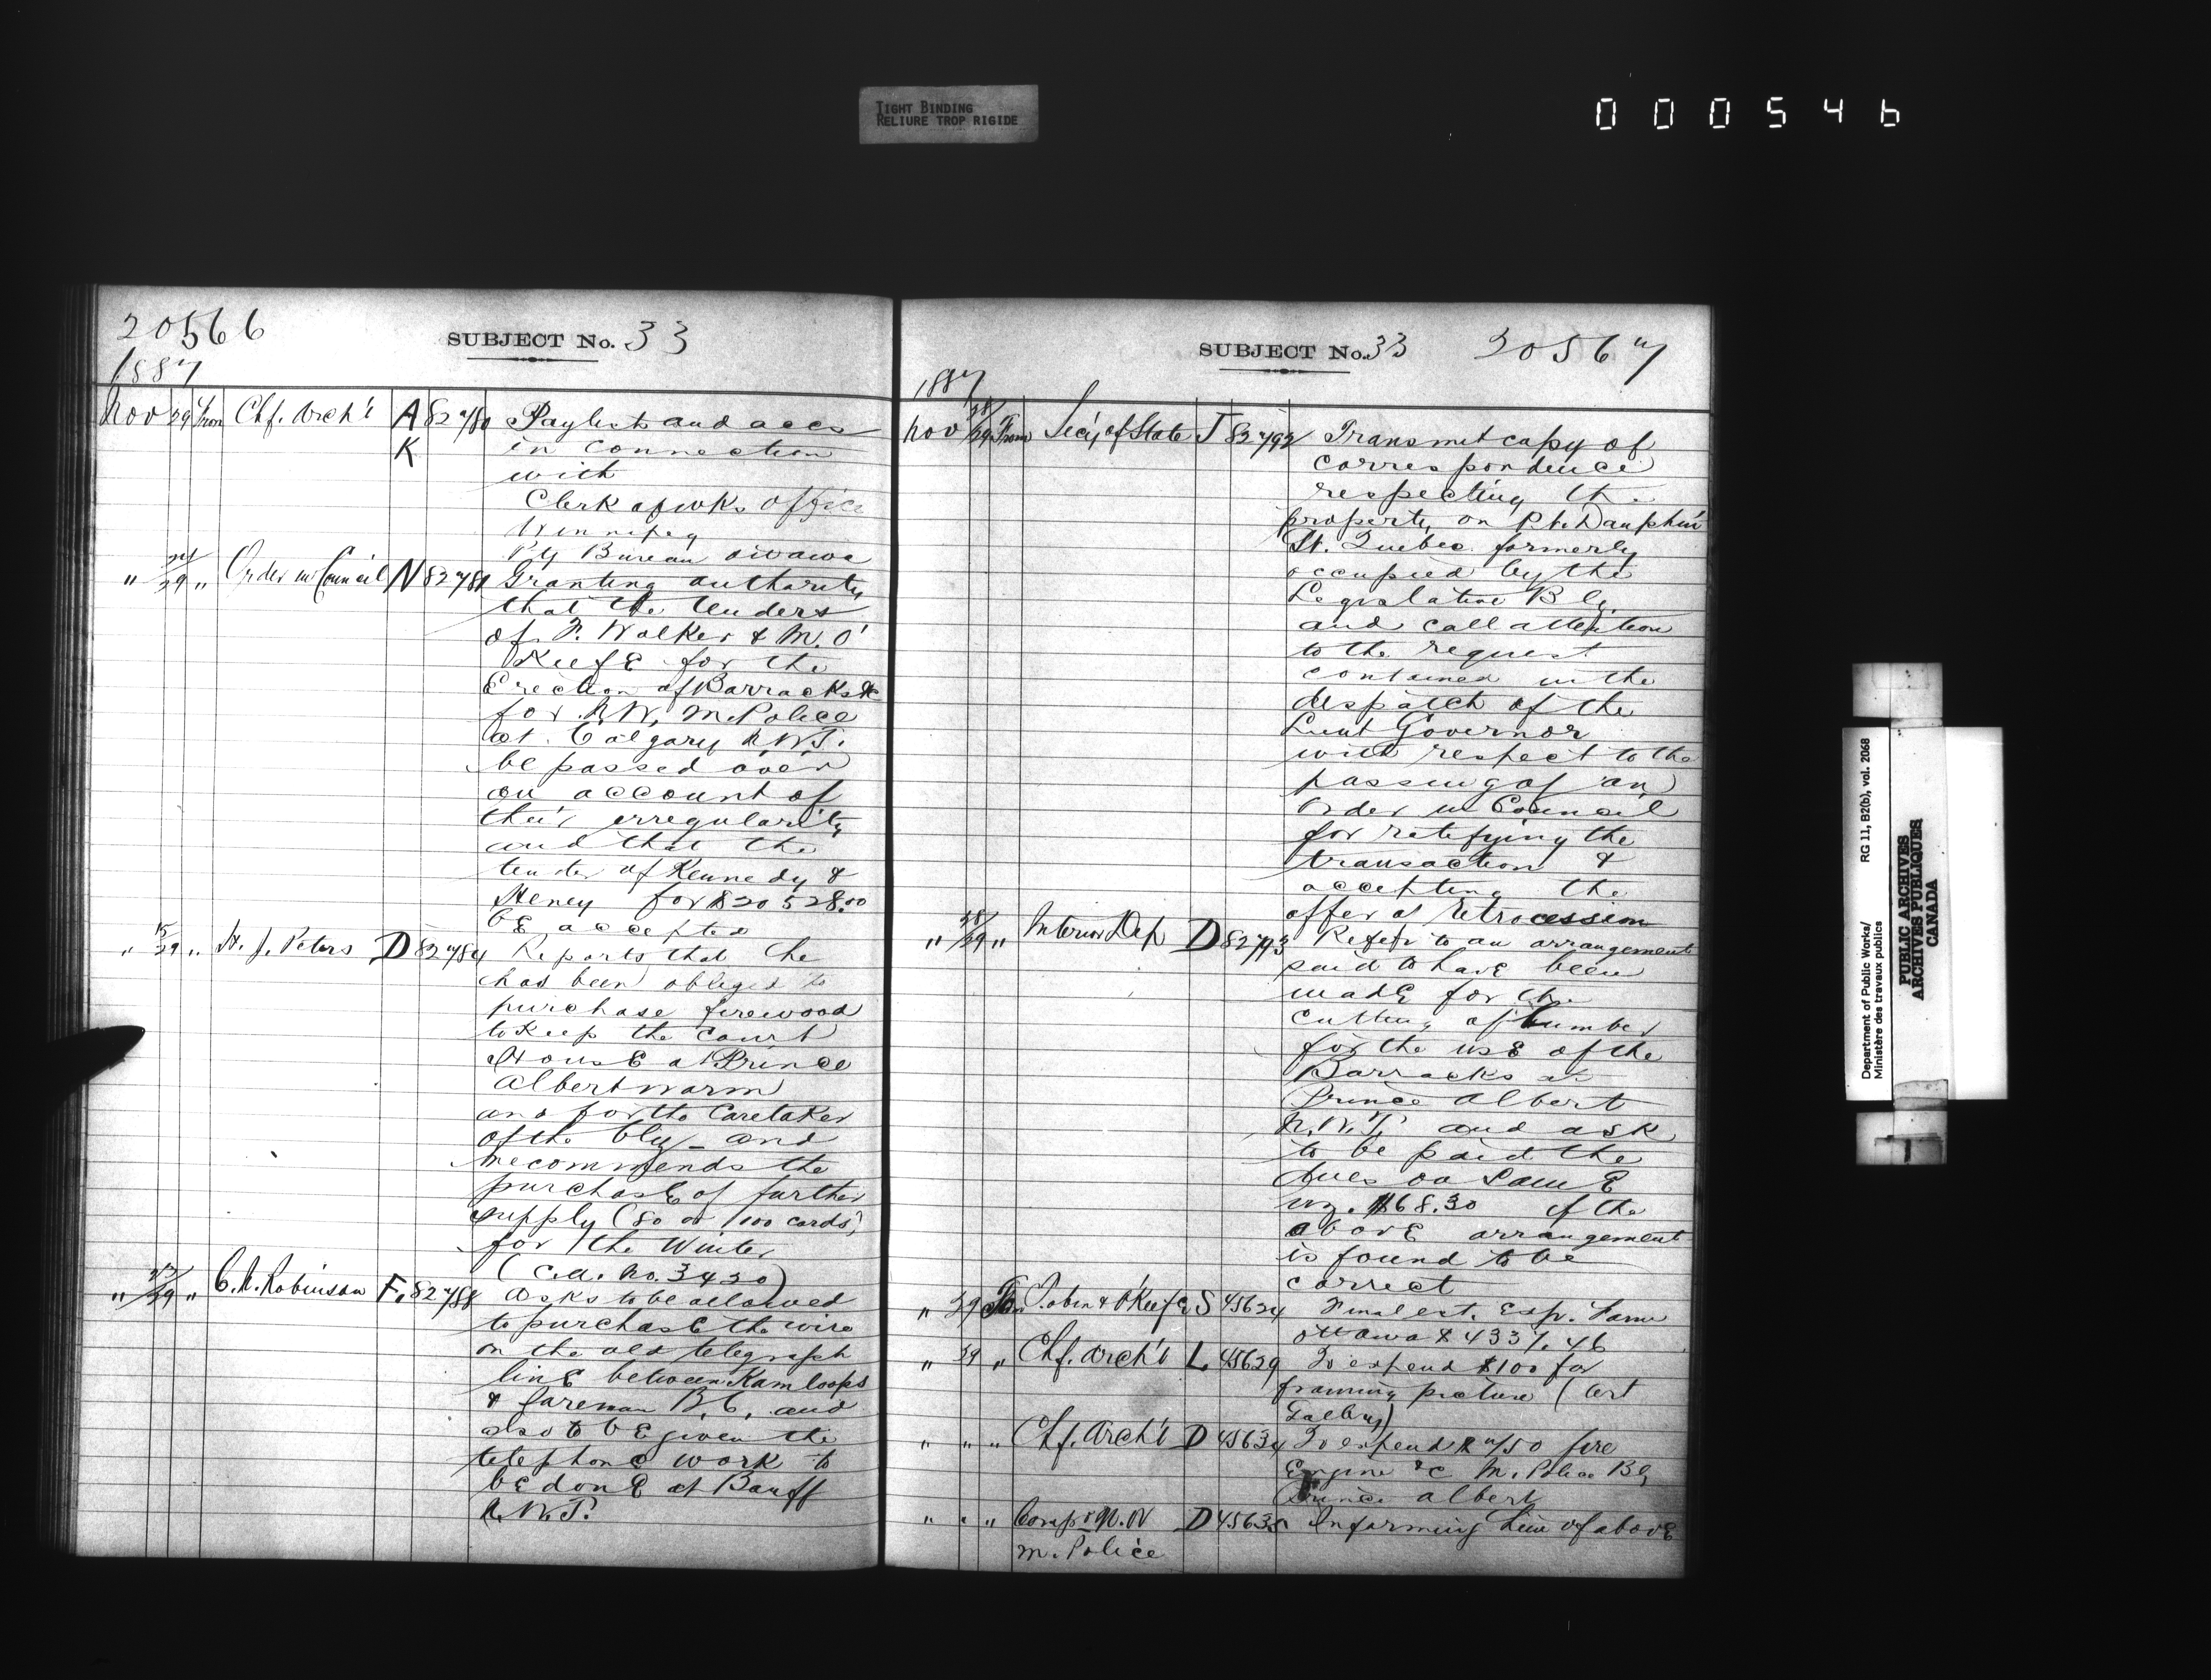 TIGHT BINDING
RELIURE TROP RIGIDE
000546
20566
SUBJECT No. 33
1887
Nov 29 From Chf. Arch't A 82780 Paylists and accs
K in connection
with
Clerk of wks Office
Winnipeg
Ptg Bureau Ottawa
" 24/29 " Order in Council N 82781 Granting authority
that the tenders
of F. Walker & M. O'
Keefe for the
Erection of Barracks &c
for N.W. M. Police
at Calgary N.W.T.
be passed over
on account of
their irregularity
and that the
tender of Kennedy &
Heney for $20528.00
be accepted
" 15/29 " H. J. Peters D 82784 Reports that he
has been obliged to
purchase firewood
to keep the Court
House at Prince
Albert warm
and for the Caretaker
of the bly - and
recommends the
purchase of further
supply (80 or 100 cords)
for the Winter
(C.A. No. 3420)
" 29 " C. A. Robinson F. 82788 Asks to be allowed
to purchase the wire
on the old telegraph
line between Kamloops
& B.C. and
also to be given the
telephone work to
be done at Banff
N.W.T.
SUBJECT No. 33 20567
1887
Nov 28/29 From Sec'y of State J 82792 Transmit copy of
correspondence
respecting the
property on Pt. Dauphin
St. Quebec formerly
occupied by the
Legislative Blg.
and call attention
to the request
contained in the
despatch of the
Lieut Governor
with respect to the
passing of an
Order in Council
for ratifying the
transaction &
accepting the
offer of retrocession
" 28/29 " Interior Dep D 82793 Refers to an arrangement
said to have been
made for the
cutting of lumber
for the use of the
Barracks at
Prince Albert
N.W.T. and ask
to be paid the
dues on same
viz. $68.30 if the
above arrangement
is found to be
correct
" 29 To Tobin & O'Keefe S 45624 Final est. Exp. Farm
Ottawa $4337.46
" 29 " Chf. Arch't L 45629 To expend $100 for
framing picture (Art
Gallery)
" " " Chf. Arch't D 45634 To expend $750 fire
Engine &c M. Police Bg,
Prince Albert
" " " Comp r N.W D 45635 Informing him of above
M. Police
Department of Public Works/
Ministère des travaux publics
RG 11, B2(b), vol. 2068
PUBLIC ARCHIVES
ARCHIVES PUBLIQUES
CANADA